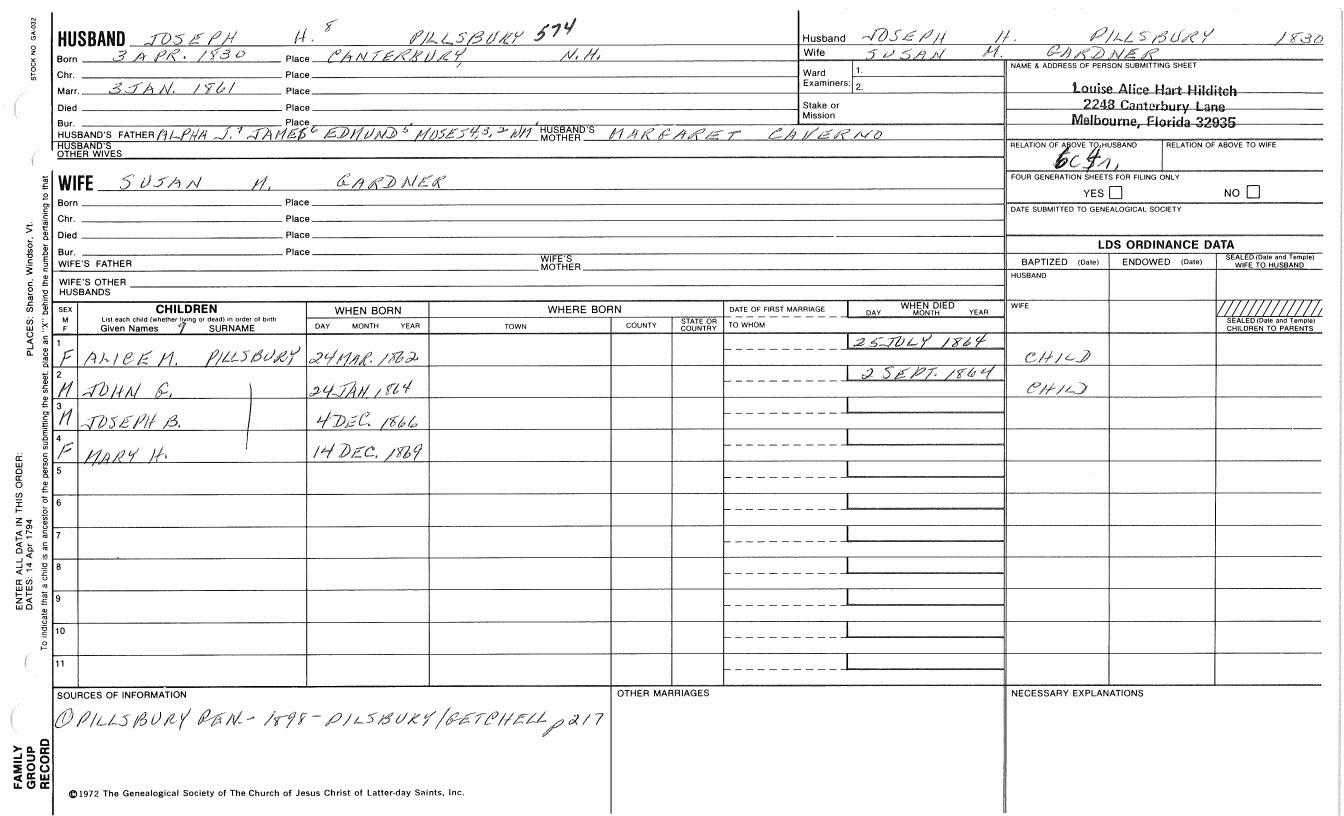 STOCK NO GA-032
PLACES: Sharon, Windsor, Vt.
ENTER ALL DATA IN THIS ORDER:
DATES: 14 Apr 1794
To indicate that a child is an ancestor of the person submitting the sheet, place an "X" behind the number pertaining to that
FAMILY
GROUP
RECORD
HUSBAND JOSEPH H. 8 PILLSBURY 574
Born 3 APR. 1830 Place CANTERBURY, N.H.
Chr. Place
Marr. 3 JAN. 1861 Place
Died Place
Bur. Place
HUSBAND'S FATHER ALPHA J.7 JAMES6 EDMUND5 MOSES4,3,2 WM1 HUSBAND'S MOTHER MARGARET CAVERNO
HUSBAND'S OTHER WIVES
WIFE SUSAN M. GARDNER
Born Place
Chr. Place
Died Place
Bur. Place
WIFE'S FATHER WIFE'S MOTHER
WIFE'S OTHER HUSBANDS
Husband JOSEPH H. PILLSBURY 1830
Wife SUSAN M. GARDNER
Ward Examiners: 1. 2.
Stake or Mission
NAME & ADDRESS OF PERSON SUBMITTING SHEET
Louise Alice Hart Hilditch
2248 Canterbury Lane
Melbourne, Florida 32935
RELATION OF ABOVE TO HUSBAND RELATION OF ABOVE TO WIFE
FOUR GENERATION SHEETS FOR FILING ONLY
YES NO
DATE SUBMITTED TO GENEALOGICAL SOCIETY
LDS ORDINANCE DATA
BAPTIZED (Date) ENDOWED (Date) SEALED (Date and Temple) WIFE TO HUSBAND
HUSBAND
WIFE
SEALED (Date and Temple) CHILDREN TO PARENTS
SEX M F CHILDREN WHEN BORN WHERE BORN DATE OF FIRST MARRIAGE WHEN DIED
List each child (whether living or dead) in order of birth
Given Names 9 SURNAME DAY MONTH YEAR TOWN COUNTY STATE OR COUNTRY TO WHOM DAY MONTH YEAR
1 F ALICE M. PILLSBURY 24 MAR. 1862 25 JULY 1864 CHILD
2 M JOHN G. 24 JAN. 1864 2 SEPT. 1864 CHILD
3 M JOSEPH B. 4 DEC. 1866
4 F MARY H. 14 DEC. 1869
5
6
7
8
9
10
11
SOURCES OF INFORMATION
OTHER MARRIAGES
NECESSARY EXPLANATIONS
① PILLSBURY GEN.- 1898 - PILSBURY/GETCHELL p217
©1972 The Genealogical Society of The Church of Jesus Christ of Latter-day Saints, Inc.